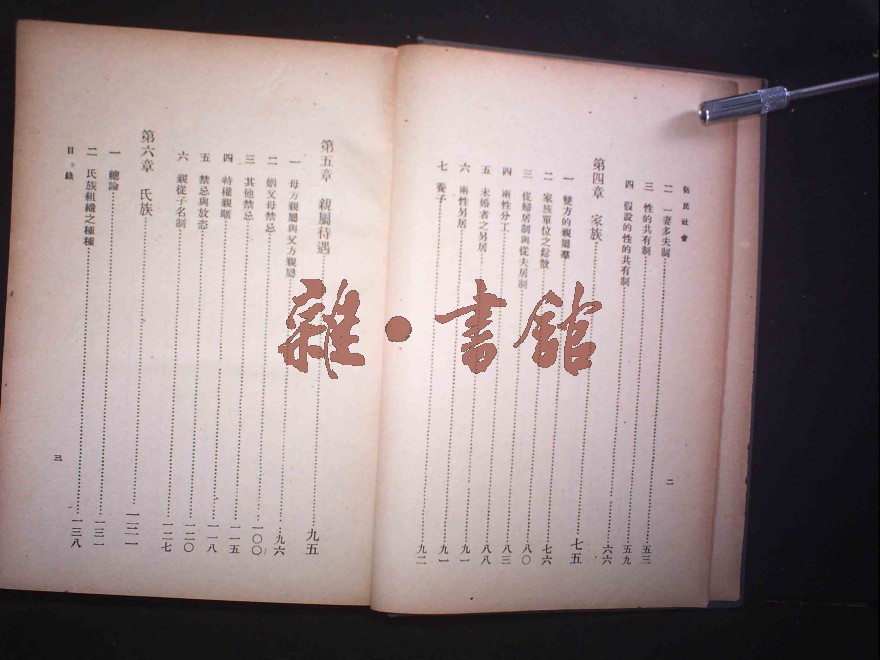 初民社會
二 一妻多夫制……五三
三 性的共有制……五九
四 假設的性的共有制……六六
第四章 家族……七五
一 雙方的親屬羣……七六
二 家族單位之鬆散……八〇
三 從婦居制與從夫居制……八三
四 兩性分工……八八
五 未婚者之另居……九一
六 兩性另居……九一
七 養子……九二
二
第五章 親屬待遇……九五
一 母方親屬與父方親屬……九六
二 姻父母禁忌……一〇〇
三 其他禁忌……一一五
四 特權親暱……一一八
五 禁忌與放恣……一二〇
六 親從子名制……一二七
第六章 氏族……一三一
一 總論……一三一
二 氏族組織之種種……一三八
目錄
三
雜·書館